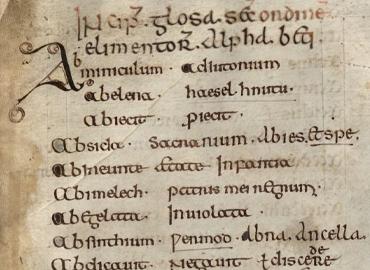 Incip̄ glosa. scōe ondine
elimentor̄. alphabeti.
Abminiculum. adiutorium
abelena. haesel hnutu.
abiecit. Proiecit.
Absida. Sacrarium. Abies. Etspe.
abineunte. Etate. Infantia
Abimelech. Patris mei regnum.
Abegelata. Inviolata.
Absinthium. Permod. Abna. Ancella.
Abdicavit. Negavit. discere de